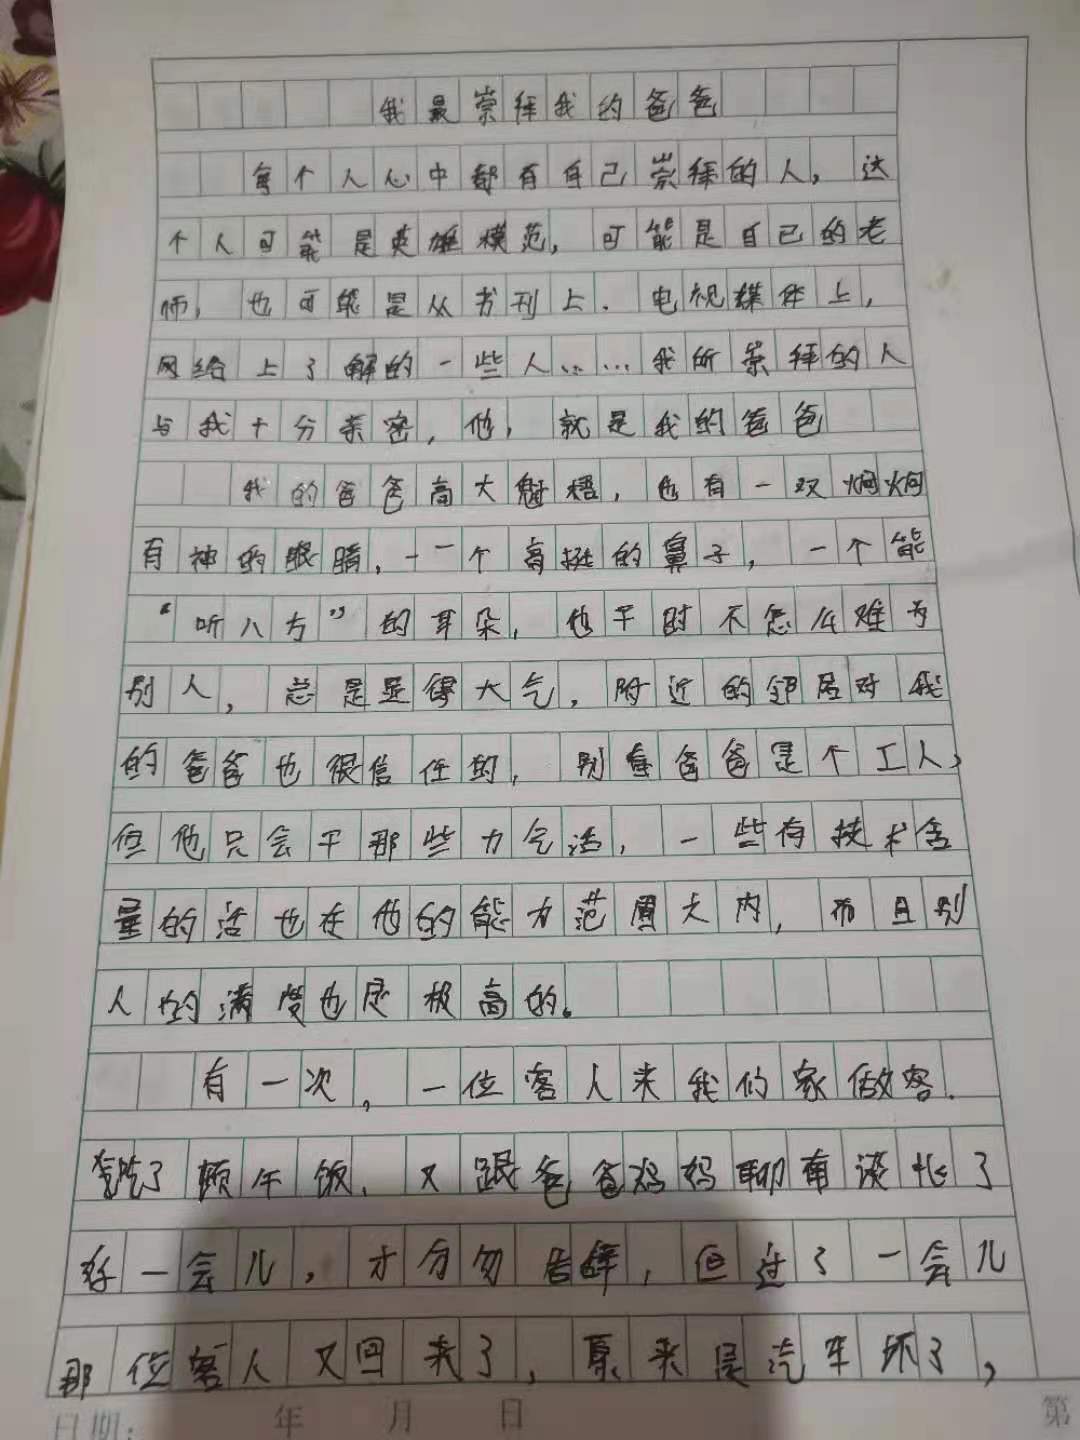 我最崇拜我的爸爸
每个人心中都有自己崇拜的人，这
个人可能是英雄模范，可能是自己的老
师，也可能是从书刊上．电视媒体上，
网络上了解的一些人……我所崇拜的人
与我十分亲密，他，就是我的爸爸
我的爸爸高大魁梧，也有一双炯炯
有神的眼睛，一个高挺的鼻子，一个能
“听八方”的耳朵，他平时不怎么难为
别人，总是显得大气，附近的邻居对我
的爸爸也很信任的，别看爸爸是个工人，
但他只会干那些力气活，一些有技术含
量的活也在他的能力范围大内，而且别
人的满度也是极高的。
有一次，一位客人来我们家做客．
吃了顿午饭，又跟爸爸妈妈聊有谈长了
好一会儿，才匆匆告辞，但过了一会儿
那位客人又回来了，原来是汽车坏了，
日期：年 月 日 第